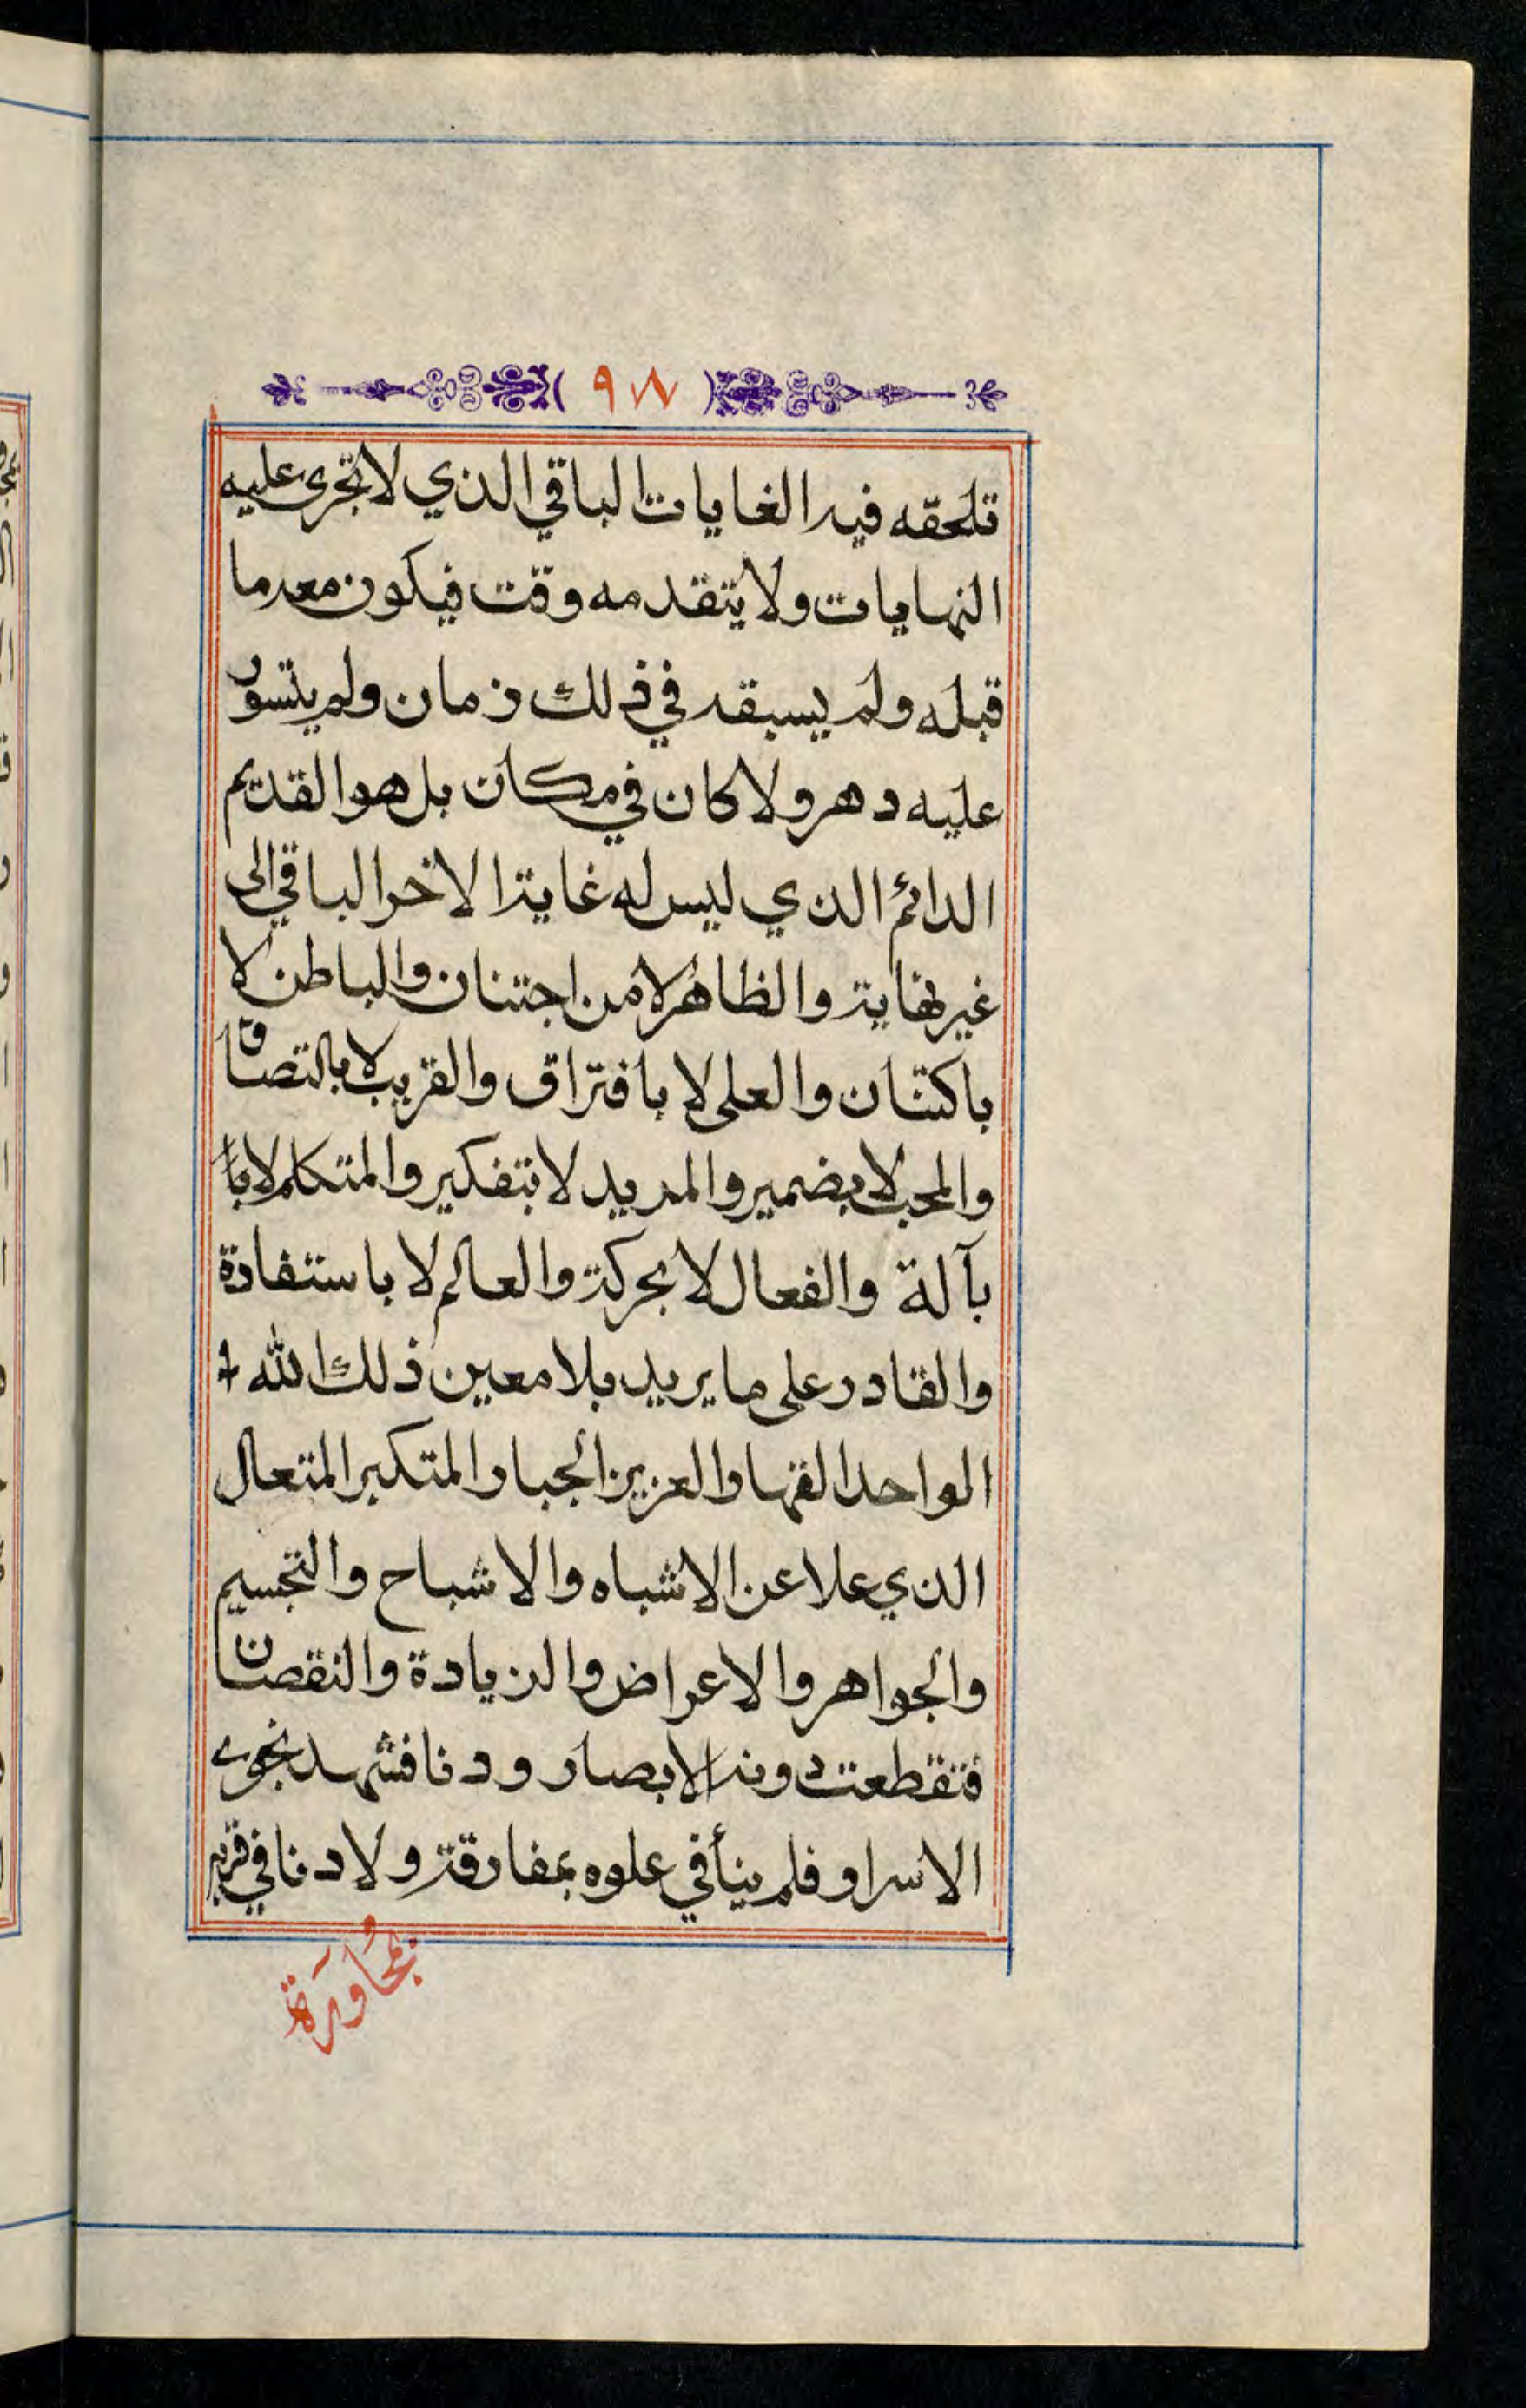 ( ٩٧٨ )
تلحقه فيه الغايات الباقي الذي لا تجرى عليه
النهايات ولا يتقدمه وقت فيكون معدما
قبله ولم يسبقه في ذلك زمان ولم يتسور
عليه دهر ولا كان في مكان بل هو القديم
الدائم الذي ليس له غاية الاخر الباقي الى
غير نهاية والظاهر لا من اجتنان والباطن لا
باكتنان والعلى لا بافتراق والقريب لا بالتصاق
والمحب لا بضمير والمريد لا بتفكير والمتكلم لا با
بآلة والفعال لا بحركة والعالم لا باستفادة
والقادر على ما يريد بلا معين ذلك الله
الواحد القهار العزيز الجبار المتكبر المتعال
الذي علا عن الاشباه والاشباح والتجسيم
والجواهر والاعراض والزيادة والنقصان
فتقطعت دونه الابصار ودنا فشهد نجوى
الاسرار فلم ينأ في علوه بمفارقة ولا دنا في قربه
بمجاورة